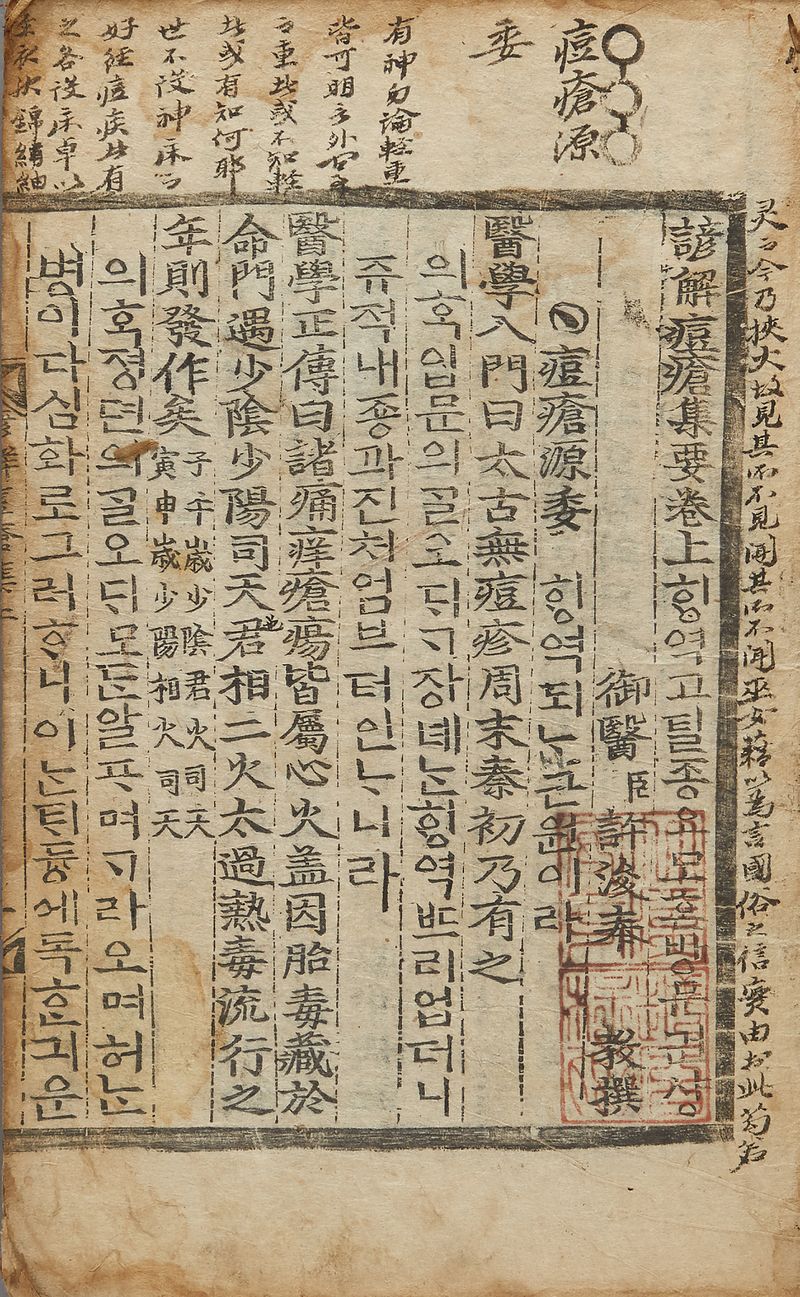 灵云今乃挾火故見其所不見聞其所不聞巫女藉以為言國俗之信實由於此
痘瘡源
委
有神勿論軽重
皆可明言外
重此或不知軽
此或有知何耶
世不設神床云
好経痘疾此有
之各設床卓以
衣 錦繡紬
諺解痘瘡集要卷上ᄒᆡᆼ역고틸종요모ᄃᆞᆫ방문권상
御醫 臣 許浚奉 教撰
痘瘡源委 ᄒᆡᆼ역되ᄂᆞᆫ근원이라
醫學入門曰太古無痘疹周末秦初乃有之
의혹입문의ᄀᆞᆯ오ᄃᆡᄀᆞ장녜ᄂᆞᆫᄒᆡᆼ역ᄠᅳ리업더니
쥬적내죵과진처엄브터인ᄂᆞ니라
醫學正傳曰諸痛痒瘡瘍皆屬心火盖因胎毒藏於
命門遇少陰少陽司天君相二火太過熱毒流行之
年則發作矣 子午歲少陰君火司天
寅申歲少陽相火司天
의혹졍뎐의ᄀᆞᆯ오ᄃᆡ모ᄃᆞᆫ알ᄑᆞ며ᄀᆞ라오며허ᄂᆞᆫ
병이다심화로그러ᄒᆞ니이ᄂᆞᆫᄐᆡ듕에독ᄒᆞᆫ긔운